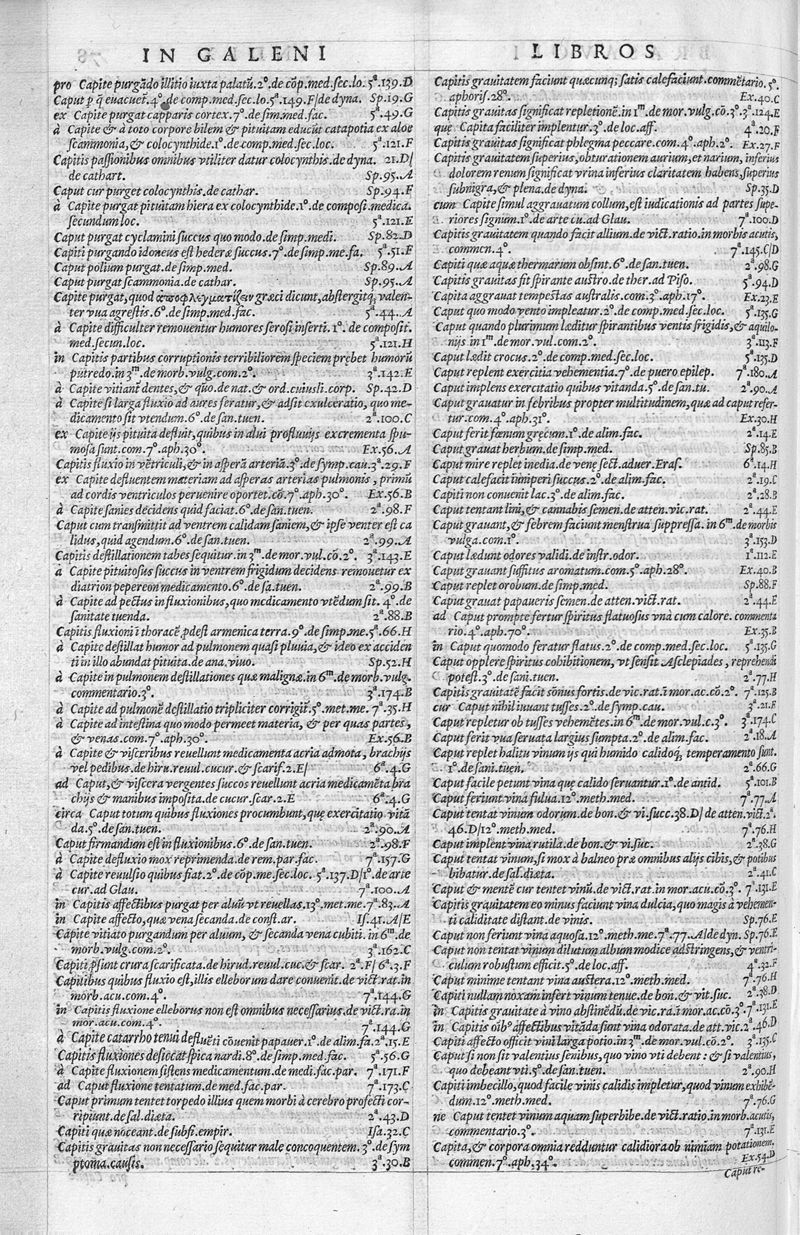 IN GALENI
pro Capite purgãdo illitio iuxta palatũ.2º.de cõp.med.sec.lo.5ª.139.D
Caput p q̃ euacuet.4º.de comp.med.sec.lo.5ª.149.F/de dyna. Sp.19.G
ex Capite purgat capparis cortex.7º.de sim.med.fac. 5ª.49.G
à Capite & à toto corpore bilem & pituitam educũt catapotia ex aloe
scammonia,& colocynthide.1º.de comp.med.sec.loc. 5ª.121.F
Capitis passionibus omnibus vtiliter datur colocynthis.de dyna. 21.D/
de cathart. Sp.95.A
Caput cur purget colocynthis.de cathar. Sp.94.F
à Capite purgat pituitam hiera ex colocynthide.1º.de composi.medica.
secundum loc. 5ª.121.E
Caput purgat cyclamini succus quo modo.de simp.medi. Sp.82.D
Capiti purgando idoneus est hederæ succus.7º.de simp.me.fa. 5ª.51.F
Caput polium purgat.de simp.med. Sp.89.A
Caput purgat scammonia.de cathar. Sp.95.A
Capite purgat, quod ἀποφλεγματίζειν græci dicunt, abstergitq; valen-
ter vua agrestis.6º.de simp.med.fac. 5ª.44.A
à Capite difficulter remouentur humores serosi inserti.1º.de composit.
med.secun.loc. 5ª.121.H
in Capitis partibus corruptionis terribiliorem speciem prębet humorũ
putredo.in 3m.de morb.vulg.com.2º. 3ª.142.E
à Capite vitiant dentes,& quo.de nat.& ord.cuiusli.corp. Sp.42.D
à Capite si larga fluxio ad aures feratur,& adsit exulceratio, quo me-
dicamento sit vtendum.6º.de san.tuen. 2ª.100.C
ex Capite ijs pituita defluit, quibus in alui profluuijs excrementa spu-
mosa sunt.com.7º.aph.30º. Ex.56.A
Capitis fluxio in vẽtriculi,& in asperã arteriã.3º.de symp.cau.3ª.29.F
ex Capite defluentem materiam ad asperas arterias pulmonis, primũ
ad cordis ventriculos peruenire oportet.cõ.7º.aph.30º. Ex.56.B
à Capite sanies decidens quid faciat.6º.de san.tuen. 2ª.98.F
Caput cum transmittit ad ventrem calidam saniem,& ipse venter est ca
lidus, quid agendum.6º.de san.tuen. 2ª.99.A
Capitis destillationem tabes sequitur.in 3m.de mor.vul.cõ.2º. 3ª.143.E
à Capite pituitosus succus in ventrem frigidum decidens remouetur ex
diatrion pepereon medicamento.6º.de sa.tuen. 2ª.99.B
à Capite ad pectus in fluxionibus, quo medicamento vtẽdum sit. 4º.de
sanitate tuenda. 2ª.88.B
Capitis fluxioni ĩ thoracẽ pdest armenica terra.9º.de simp.me.5ª.66.H
à Capite destillat humor ad pulmonem quasi pluuia,& ideo ex acciden
ti in illo abundat pituita.de ana.viuo. Sp.52.H
à Capite in pulmonem destillationes quæ malignæ.in 6m.de morb.vulg.
commentario.3º. 3ª.174.B
à Capite ad pulmonẽ destillatio tripliciter corrigit̃.5º.met.me.7ª.35.H
à Capite ad intestina quo modo permeet materia, & per quas partes,
& venas.com.7º.aph.30º. Ex.56.B
à Capite & visceribus reuellunt medicamenta acria admota, brachijs
vel pedibus.de hiru.reuul.cucur.& scarif.2.E/ 6ª.4.G
ad Caput,& viscera vergentes succos reuellunt acria medicamẽta bra
chijs & manibus imposita.de cucur.scar.2.E 6ª.4.G
circa Caput totum quibus fluxiones procumbunt, quę exercitatio vitã
da.5º.de san.tuen. 2ª.90.A
Caput firmandum est in fluxionibus.6º.de san.tuen. 2ª.98.F
à Capite defluxio mox reprimenda.de rem.par.fac. 7ª.157.G
à Capite reuulsio quibus fiat.2º.de cõp.me.sec.loc. 5ª.137.D/1º.de arte
cur.ad Glau. 7ª.100.A
in Capitis affectibus purgat per aluũ vt reuellas.13º.met.me.7ª.83.A
in Capite affecto, quæ vena secanda.de const.ar. Is.41.A/E
Capite vitiato purgandum per aluum, & secanda vena cubiti. in 6m.de
morb.vulg.com.2º. 3ª.162.C
Capiti psunt crura scarificata.de hirud.reuul.cuc.& scar. 2ª.F/6ª.3.F
Capitibus quibus fluxio est, illis elleborum dare conuenit.de vict.rat.in
morb.acu.com.4º. 7ª.144.G
in Capitis fluxione elleborus non est omnibus necessarius.de vict.ra.in
mor.acu.com.4º. 7ª.144.G
à Capite catarrho tenui defluẽti cõuenit papauer.1º.de alim.fa.2ª.15.E
Capitis fluxiones desiccat spica nardi.8º.de simp.med.fac. 5ª.56.G
à Capite fluxionem sistens medicamentum.de medi.fac.par. 7ª.171.F
ad Caput fluxione tentatum.de med.fac.par. 7ª.173.C
Caput primum tentet torpedo illius quem morbi à cerebro profecti cor-
ripiunt.de sal.diæta. 2ª.43.D
Capiti quæ noceant.de subfi.empir. Isa.32.C
Capitis grauitas non necessario sequitur male concoquentem.3º.de sym
ptoma.causis. 3ª.30.B
LIBROS
Capitis grauitatem faciunt quæcunq; satis calefaciunt.commẽtario.5º.
aphoris.28º. Ex.40.C
Capitis grauitas significat repletionẽ.in 1m.de mor.vulg.cõ.3º.3ª.124.E
que Capita faciliter implentur.3º.de loc.aff. 4ª.20.F
Capitis grauitas significat phlegma peccare.com.4º.aph.2º. Ex.27.F
Capitis grauitatem superius, obturationem aurium, et narium, inferius
dolorem renum significat vrina inferius claritatem habens, superius
subnigra,& plena.de dyna. Sp.35.D
cum Capite simul aggrauatum collum, est iudicationis ad partes supe-
riores signum.1º.de arte cu.ad Glau. 7ª.100.D
Capitis grauitatem quando facit allium.de vict.ratio.in morbis acutis,
commen.4º. 7ª.145.C/D
Capiti quæ aquæ thermarum obsint.6º.de san.tuen. 2ª.98.G
Capitis grauitas fit spirante austro.de ther.ad Piso. 5ª.94.D
Capita aggrauat tempestas australis.com.3º.aph.17º. Ex.23.E
Caput quo modo vento impleatur.2º.de comp.med.sec.loc. 5ª.135.G
Caput quando plurimum læditur spirantibus ventis frigidis,& aquilo-
nijs in 1m.de mor.vul.com.2º. 3ª.113.F
Caput lædit crocus.2º.de comp.med.sec.loc. 5ª.135.D
Caput replent exercitia vehementia.7º.de puero epilep. 7ª.180.A
Caput implens exercitatio quibus vitanda.5º.de san.tu. 2ª.90.A
Caput grauatur in febribus propter multitudinem, quæ ad caput refer-
tur.com.4º.aph.31º. Ex.30.H
Caput ferit fœnum gręcum.1º.de alim.fac. 2ª.14.E
Caput grauat herbum.de simp.med. Sp.85.B
Caput mire replet inedia.de venę sect.aduer.Eras. 6ª.14.H
Caput calefacit iuniperi succus.2º.de alim.fac. 2ª.19.C
Capiti non conuenit lac.3º.de alim.fac. 2ª.28.B
Caput tentant lini,& cannabis semen.de atten.vic.rat. 2ª.44.E
Caput grauant,& febrem faciunt menstrua suppressa. in 6m.de morbis
vulga.com.1º. 3ª.153.D
Caput lædunt odores validi.de instr.odor. 1ª.112.E
Caput grauant suffitus aromatum.com.5º.aph.28º. Ex.40.B
Caput replet orobum.de simp.med. Sp.88.F
Caput grauat papaueris semen.de atten.vict.rat. 2ª.44.E
ad Caput prompte fertur spiritus flatuosus vna cum calore. commenta
rio.4º.aph.70º. Ex.35.B
in Caput quomodo feratur flatus.2º.de comp.med.sec.loc. 5ª.135.G
Caput opplere spiritus cohibitionem, vt sensit Asclepiades, reprehendi
potest.3º.de sani.tuen. 2ª.77.H
Capitis grauitatẽ facit sonus fortis.de vic.rat.ĩ mor.ac.cõ.2º. 7ª.125.B
cur Caput nihil iuuant tusses.2º.de symp.cau. 3ª.21.F
Caput repletur ob tusses vehemẽtes.in 6m.de mor.vul.c.3º. 3ª.174.C
Caput ferit vua seruata largius sumpta.2º.de alim.fac. 2ª.18.A
Caput replet halitu vinum ijs qui humido calidoq; temperamento sunt.
1º.de sani.tuen. 2ª.66.G
Caput facile petunt vina quę calido seruantur.1º.de antid. 5ª.101.B
Caput feriunt vina fulua.12º.meth.med. 7ª.77.A
Caput tentat vinum odorum.de bon.& vi.succ.38.D/de atten.vict.2ª.
46.D/12º.meth.med. 7ª.76.H
Caput implent vina rutila.de bon.& vi.suc. 2ª.38.G
Caput tentat vinum, si mox à balneo præ omnibus alijs cibis,& potibus
bibatur.de sal.diæta. 2ª.41.C
Caput & mentẽ cur tentet vinũ.de vict.rat.in mor.acu.cõ.3º. 7ª.131.E
Capitis grauitatem eo minus faciunt vina dulcia, quo magis à vehemen-
ti caliditate distant.de vinis. Sp.76.E
Caput non feriunt vina aquosa.12º.meth.me.7ª.77.A/de dyn. Sp.76.E
Caput non tentat vinum dilutum album modice adstringens,& ventri-
culum robustum efficit.5º.de loc.aff. 4ª.32.F
Caput minime tentant vina austera.12º.meth.med. 7ª.76.H
Capiti nullam noxam infert vinum tenue.de bon.& vit.suc. 2ª.38.D
in Capitis grauitate à vino abstinẽdũ.de vic.ra.ĩ mor.ac.cõ.3º.7ª.131.E
in Capitis oĩbº affectibus vitãda sunt vina odorata.de att.vic.2ª.46.D
Capitis affectio officit vini larga potio.in 3m.de mor.vul.cõ.2º. 3ª.135.C
Caput si non sit valentius senibus, quo vino vti debent: & si valentius,
quo debeant vti.5º.de san.tuen. 2ª.90.H
Capiti imbecillo, quod facile vinis calidis impletur, quod vinum exhibẽ-
dum.12º.meth.med. 7ª.76.G
ne Caput tentet vinum aquam superbibe.de vict.ratio.in morb.acutis,
commentario.3º. 7ª.131.E
Capita,& corpora omnia redduntur calidiora ob nimiam potationem,
commen.7º.aph.34º. Ex.54.D
Caput re-